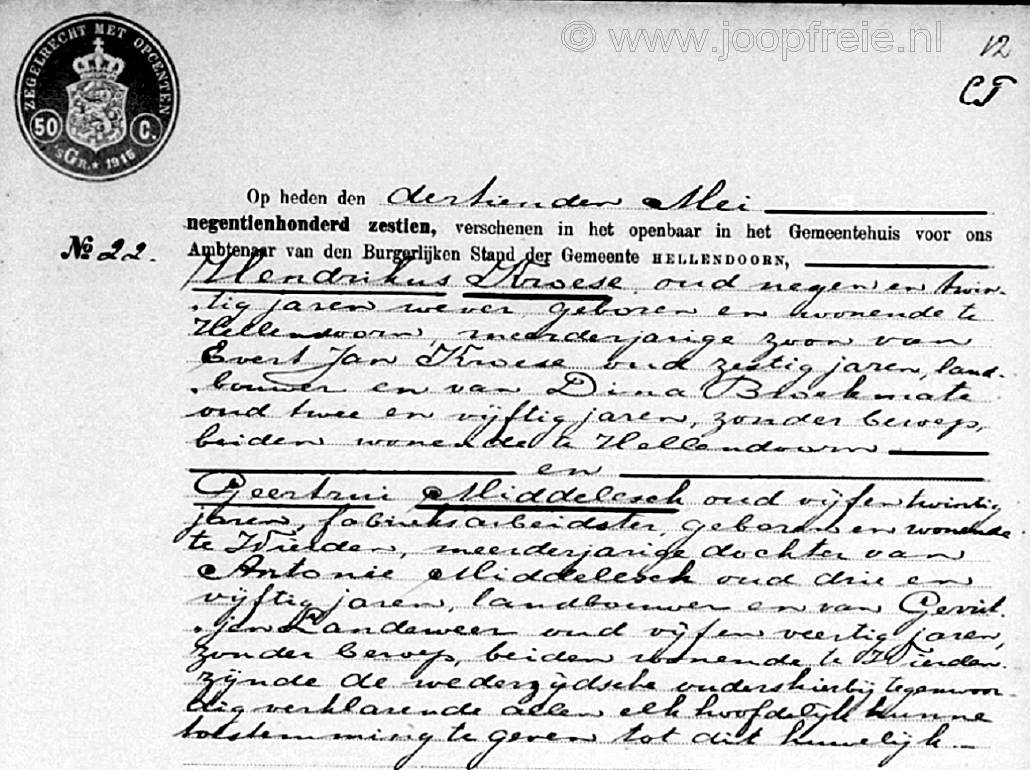 © www.joopfreie.nl
12
CT
ZEGELRECHT MET OPCENTEN
50 C.
'sGR. * 1916
Op heden den dertienden Mei
negentienhonderd zestien, verschenen in het openbaar in het Gemeentehuis voor ons
No 22.
Ambtenaar van den Burgerlijken Stand der Gemeente HELLENDOORN,
Hendrikus Kroese, oud negen en twin-
tig jaren wever, geboren en wonende te
Hellendoorn, meerderjarige zoon van
Evert Jan Kroese oud zestig jaren, land-
bouwer en van Dina Blokmate
oud twee en vijftig jaren, zonder beroep,
beiden wonende te Hellendoorn
en
Geertrui Middelesch oud vijfentwintig
jaren, fabrieksarbeidster, geboren en wonende
te Wierden, meerderjarige dochter van
Antonie Middelesch oud drie en
vijftig jaren, landbouwer en van Gerrit-
jen Landeweer oud vijfen veertig jaren,
zonder beroep, beiden wonende te Wierden.
zijnde de wederzijdsche ouders hierbij tegenwoor-
dig verklarende allen elk hoofdelijk hunne
toestemming te geven tot dit huwelijk